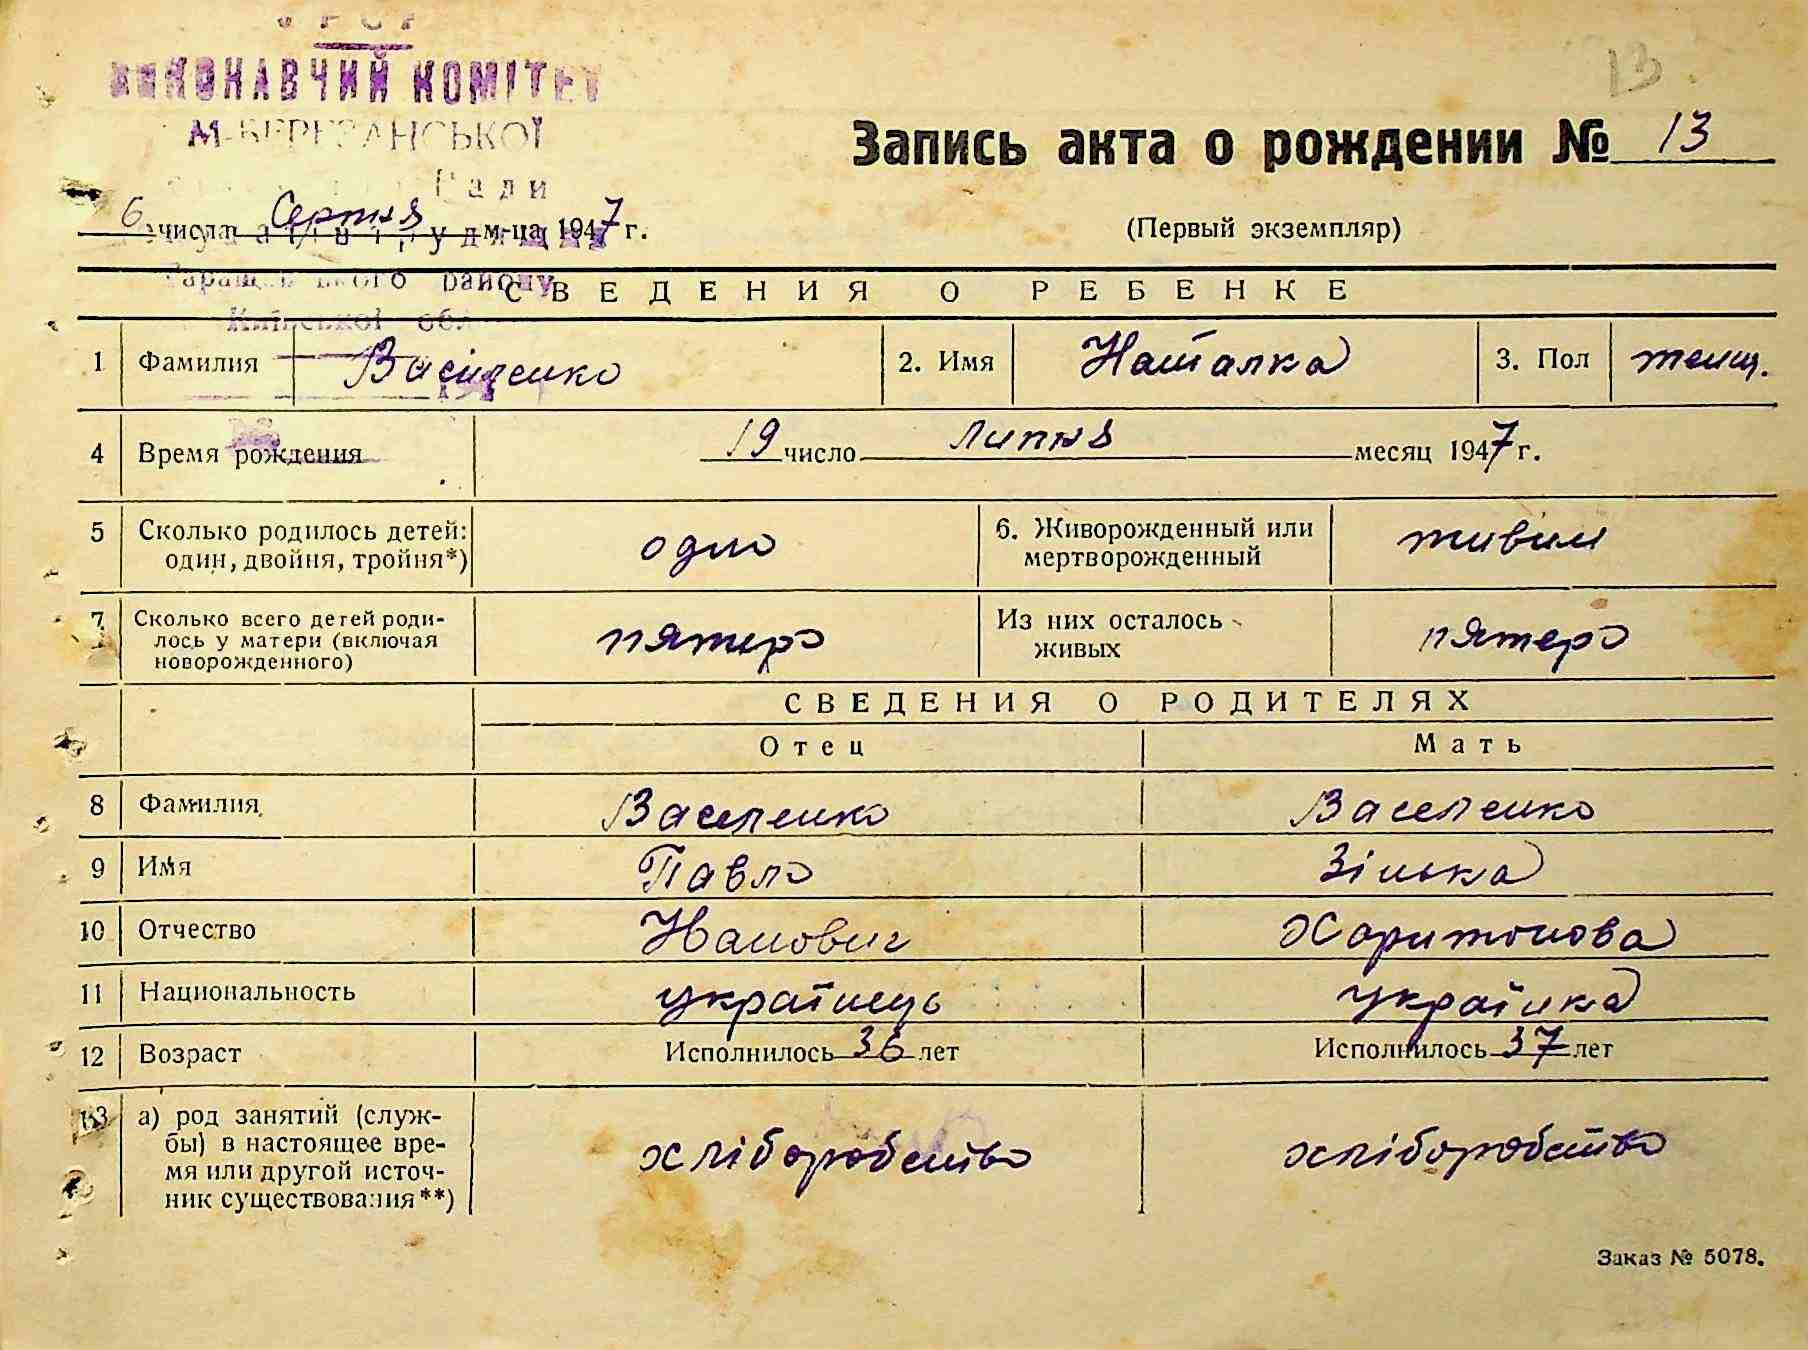 УРСР
ВИКОНАВЧИЙ КОМІТЕТ
М-БЕРЕЗАНСЬКОЇ
Ради
13
Запись акта о рождении № 13
6 числа Серпня м-ца 1947 г.
(Первый экземпляр)
Таращанського району
Київської обл
СВЕДЕНИЯ О РЕБЕНКЕ
1 Фамилия Василенко 2. Имя Наталка 3. Пол женщ.
4 Время рождения 19 число Липня месяц 1947 г.
5 Сколько родилось детей: один, двойня, тройня*) одно 6. Живорожденный или мертворожденный живим
7 Сколько всего детей родилось у матери (включая новорожденного) пятеро Из них осталось живых пятеро
СВЕДЕНИЯ О РОДИТЕЛЯХ
Отец Мать
8 Фамилия Василенко Василенко
9 Имя Павло Зінька
10 Отчество Иванович Харитонова
11 Национальность українець українка
12 Возраст Исполнилось 36 лет Исполнилось 37 лет
13 а) род занятий (служ-
бы) в настоящее вре-
мя или другой источ-
ник существования**) хліборобство хліборобство
Заказ № 5078.